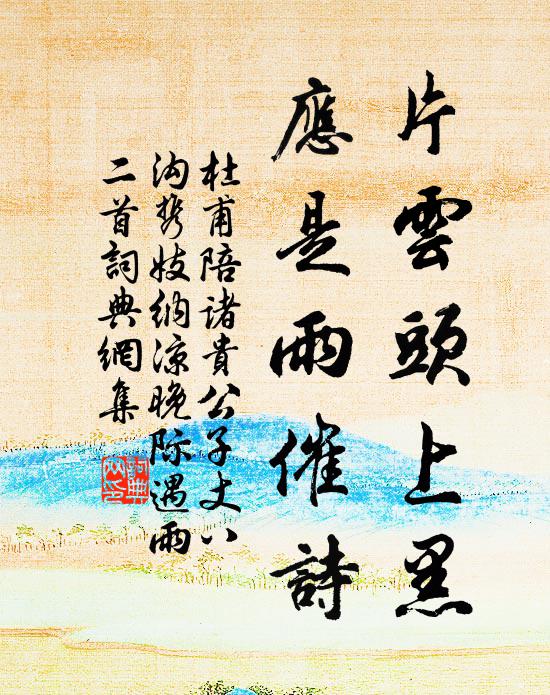 片雲頭上黑
應是雨催詩
杜甫陪诸貴公子丈八
沟携妓纳凉晚际遇雨
二首詞典網集